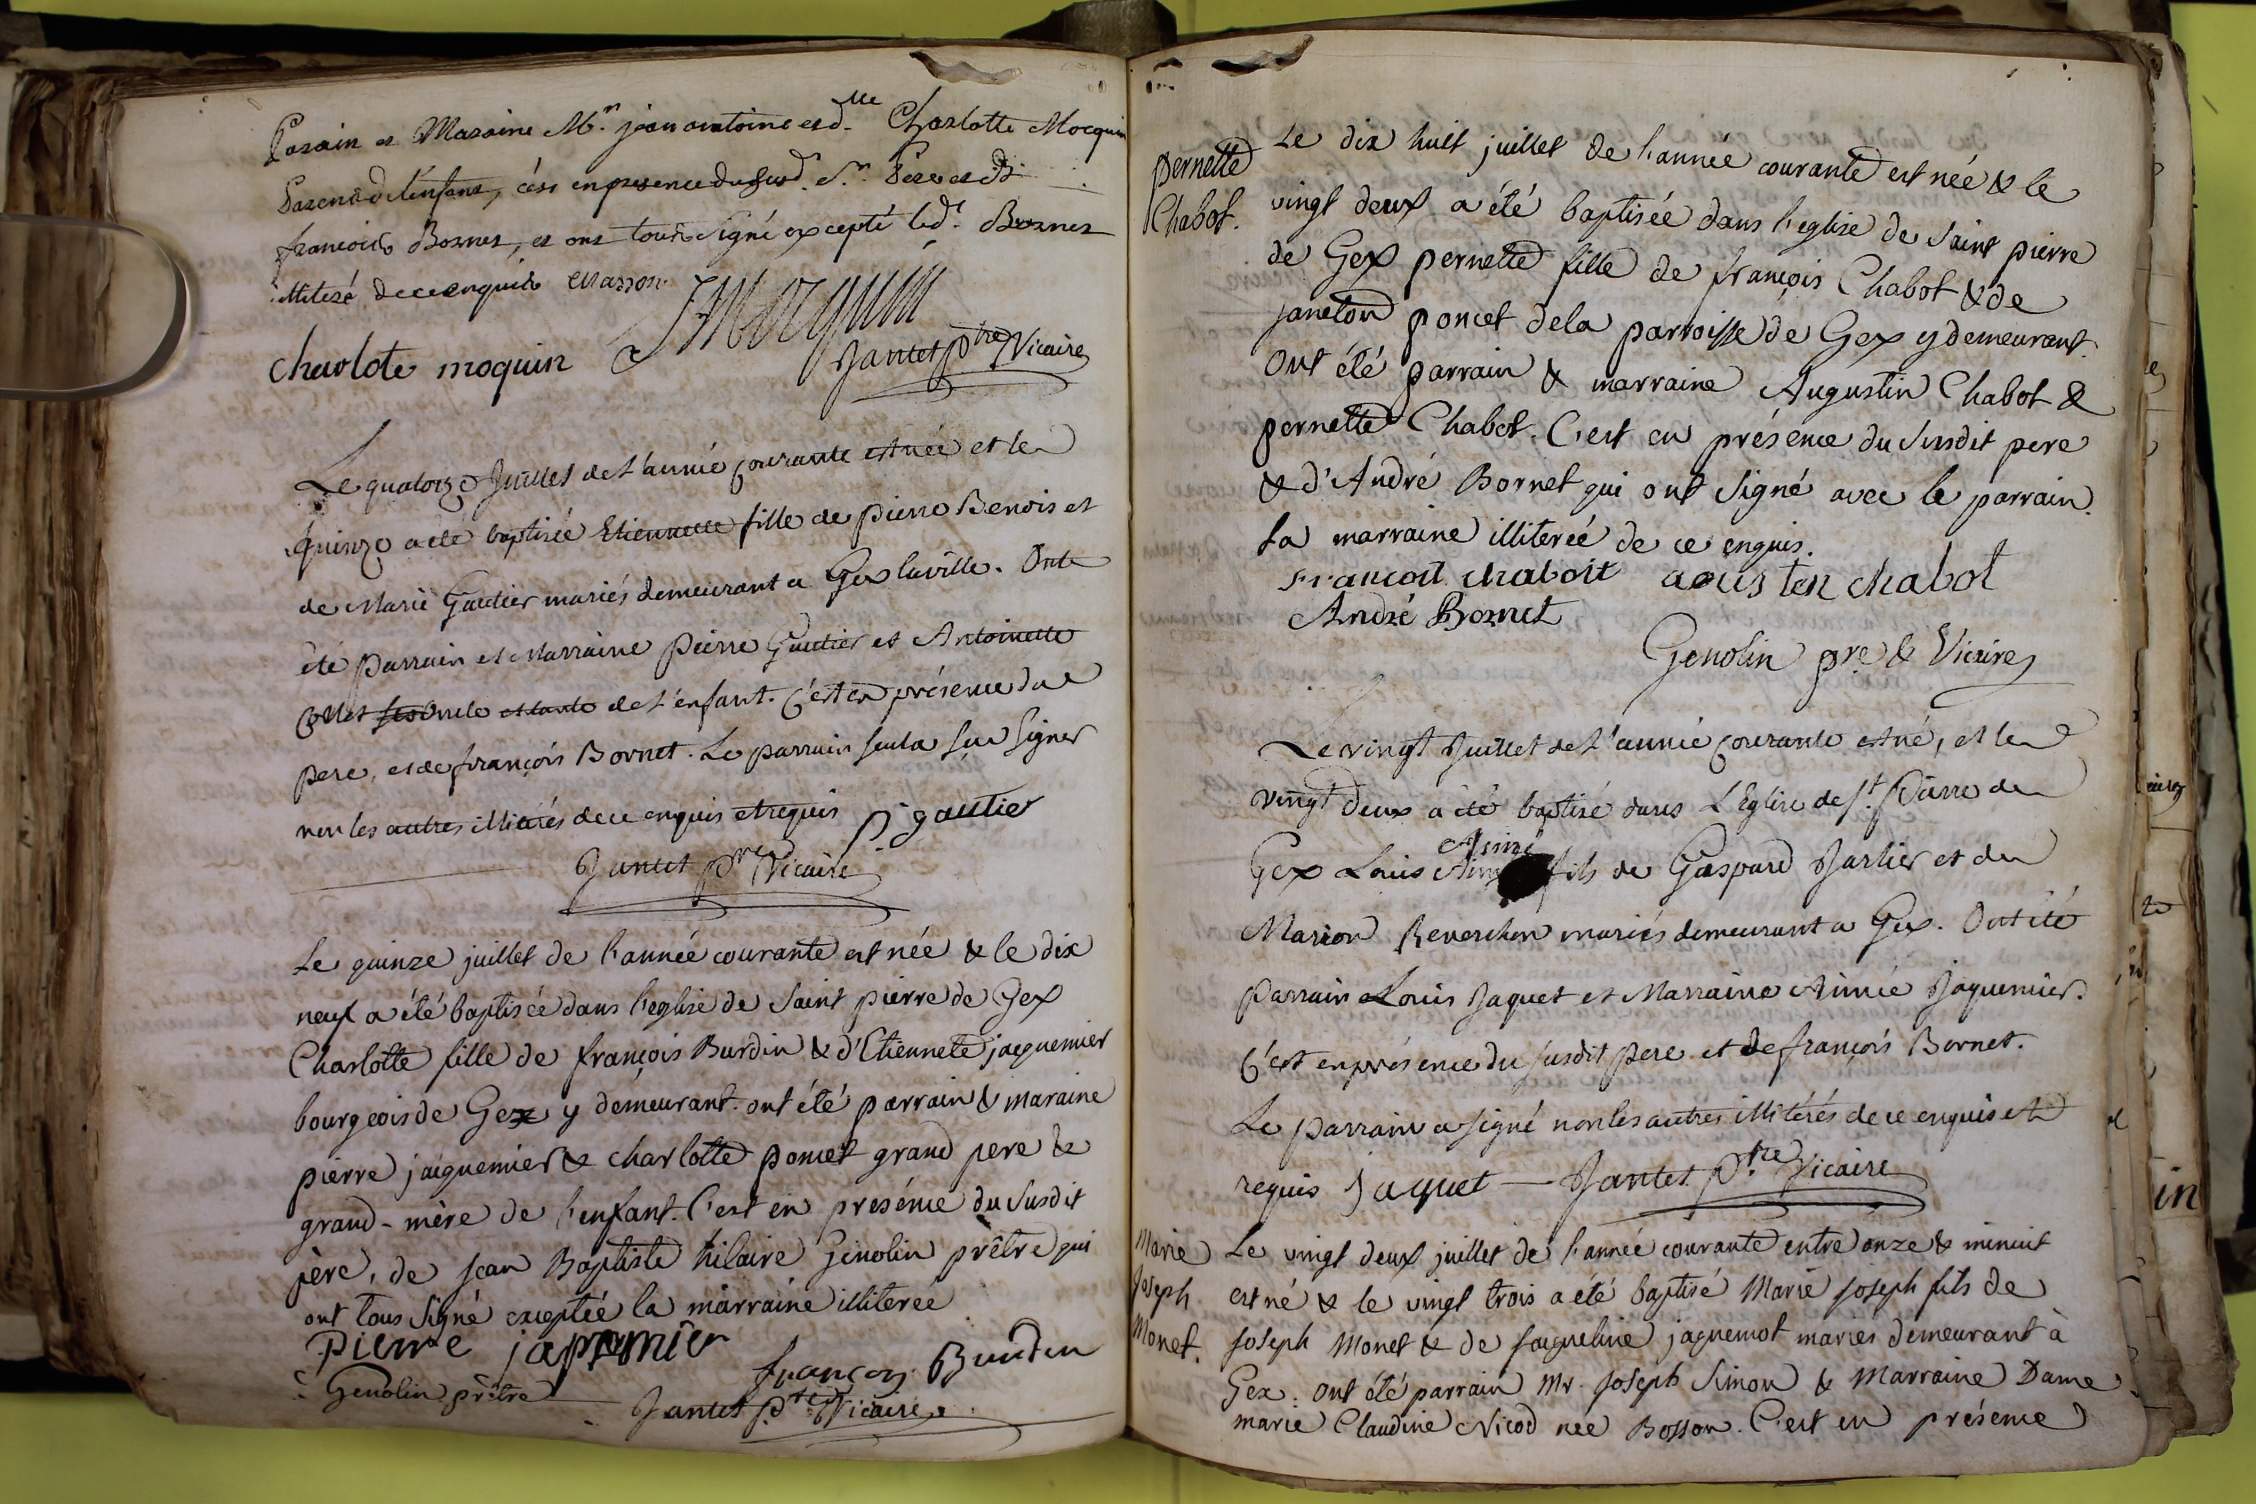 Parain et Maraine Mr. jean antoine et dlle Charlotte Mocquin
Parens de l'enfant, c'est en presence du susd. Sr. Pere et de
francois Bornet, et ont tous signé excepté led. Bornet
illiteré de ce enquis
charlote moquin
JMocquin
Jantet ptre Vicaire
Le quatorze Juillet de l'année courante est née et le
quinze a été baptisée Etiennette fille de pierre Benois et
de Marie Gautier mariés demeurant a Gex la ville. Ont
été parrain et Marraine Pierre Gautier et Antoinette
Collet ses oncle et tante de l'enfant. C'est en présence du
pere, et de françois Bornet. Le parrain seul a sçu signer
non les autres illitérés de ce enquis et requis p. gautier
Jantet ptre Vicaire
Le quinze juillet de l'année courante est née & le dix
neuf a été baptisée dans l'eglise de Saint pierre de Gex
Charlotte fille de françois Burdin & d'Etiennete jaquemier
bourgeois de Gex y démeurant. ont été parrain & maraine
pierre jaiguemier & charlotte poncet grand pere &
grand-mère de l'enfant. C'est en présénce du Susdit
père, de Jean Baptiste hilaire Génolin prêtre qui
ont tous Signé exceptée la marraine illiterée
Pierre japrmier
françois Burdin
Genolin prêtre
Jantet ptre Vicaire
pernette
Chabot.
Le dix huit juillet de l'année courante est née & le
vingt deux a été baptisée dans l'eglise de Saint pierre
de Gex pernette fille de françois Chabot & de
janeton poncet de la parroisse de Gex y demeurant.
Ont été parrain & marraine Augustin Chabot &
pernette Chabot. C'est en présence du Susdit pere
& d'André Bornet qui ont Signé avec le parrain.
La marraine illiterée de ce enquis.
francoit chaboit aous ten chabot
André Bornet
Genolin pre & Vicaire
Le vingt Juillet de l'année courante est né, et le
vingt deux a été baptisé dans L'Eglise de St. Pierre de
Aimé
Gex Louis Aimé fils de Gaspard Jarlier et de
Marion Reverchon mariés demeurant a Gex. Ont été
parrain Louis Jaquet et Marraine Aimée Jaquemier.
C'est en présence du susdit pere et de françois Bornet.
Le parrain a signé non les autres illitérés de ce enquis et
requis Jaquet — Jantet ptre Vicaire
Marie
Joseph
Monet.
Le vingt deux juillet de l'année courante entre onze & minuit
est né & le vingt trois a été baptisé Marie joseph fils de
joseph Monet & de jaqueline jaquemot mariés demeurant à
Gex. Ont été parrain Mr. joseph Simon & Marraine Dame
marie Claudine Nicod née Bosson. C'est en présence
in